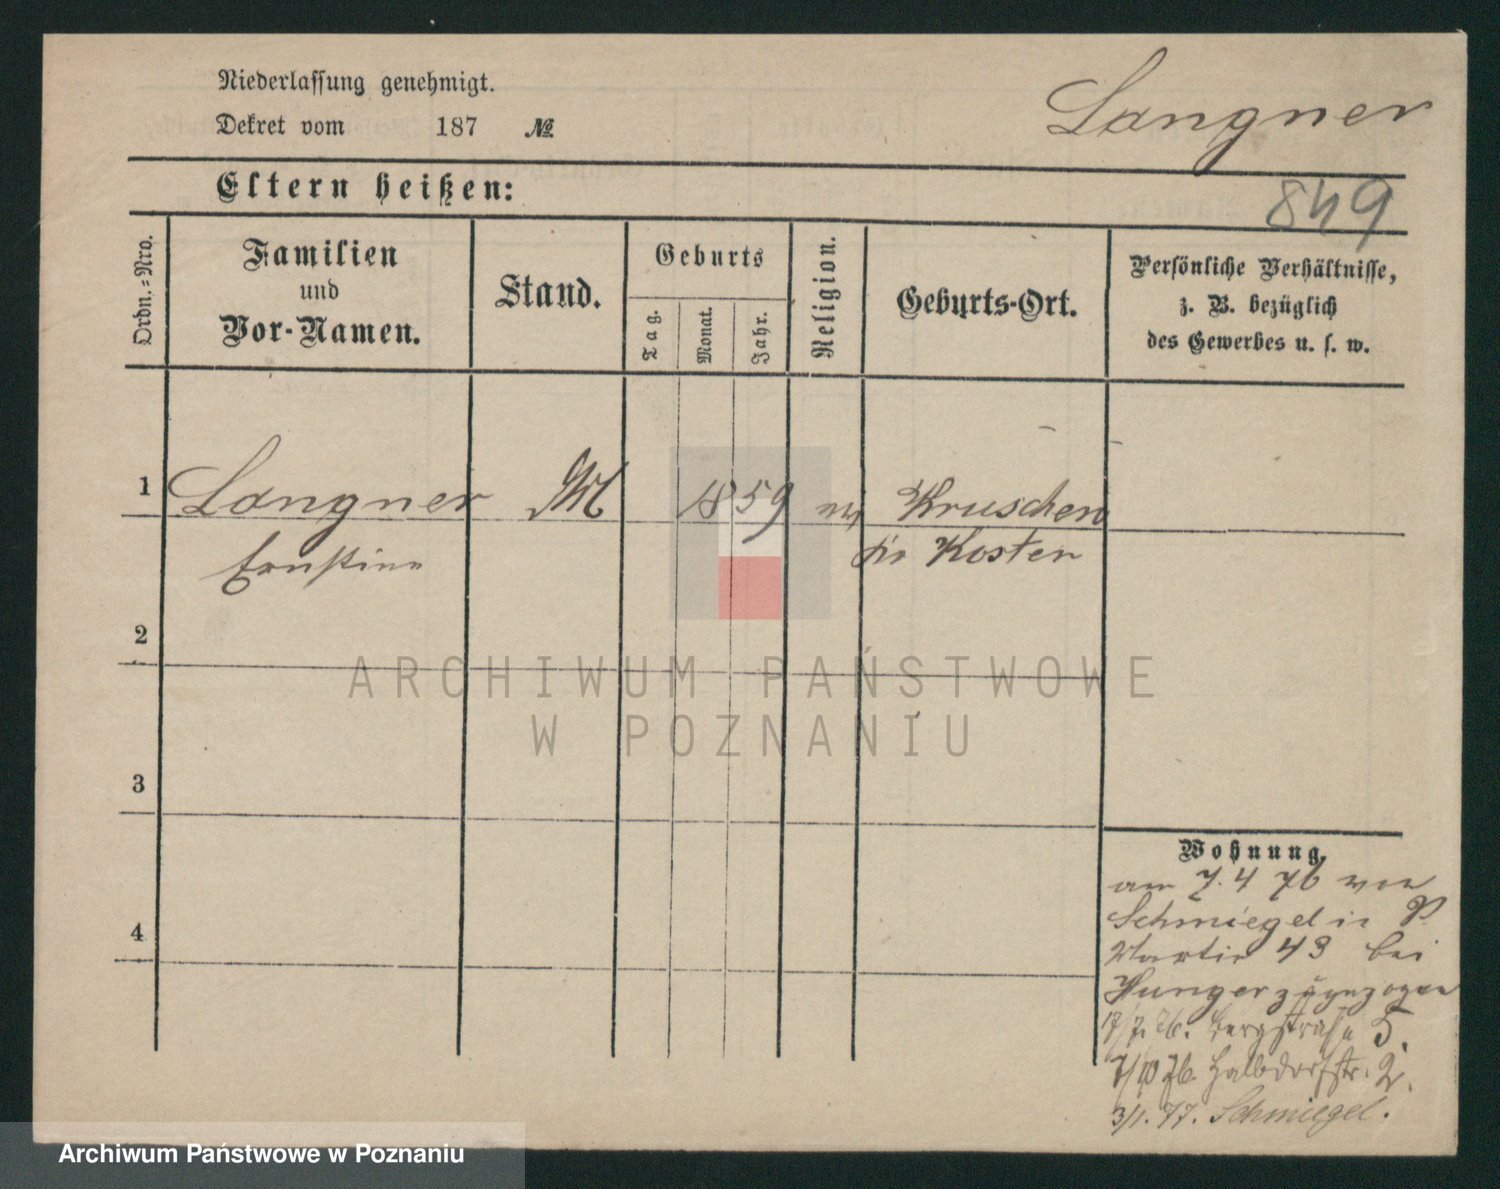 Niederlassung genehmigt.
Dekret vom 187 №
Langner
Eltern heißen:
849
Ordn.=Nro.
Familien
und
Vor-Namen.
Stand.
Geburts
Tag.
Monat.
Jahr.
Religion.
Geburts-Ort.
Persönliche Verhältnisse,
z. B. bezüglich
des Gewerbes u. s. w.
1 Langner M 1859 Kruschen
Ernstine Kosten
2
ARCHIWUM PAŃSTWOWE
W POZNANIU
3
Wohnung.
am 7. 4 76 von
Schmiegel in P.
4
Martin 43 bei
Hunger zugezogen
17/7. 76. Bergstraße 5.
7/10 76. Halbdorfstr. 2.
3/1. 77. Schmiegel.
Archiwum Państwowe w Poznaniu